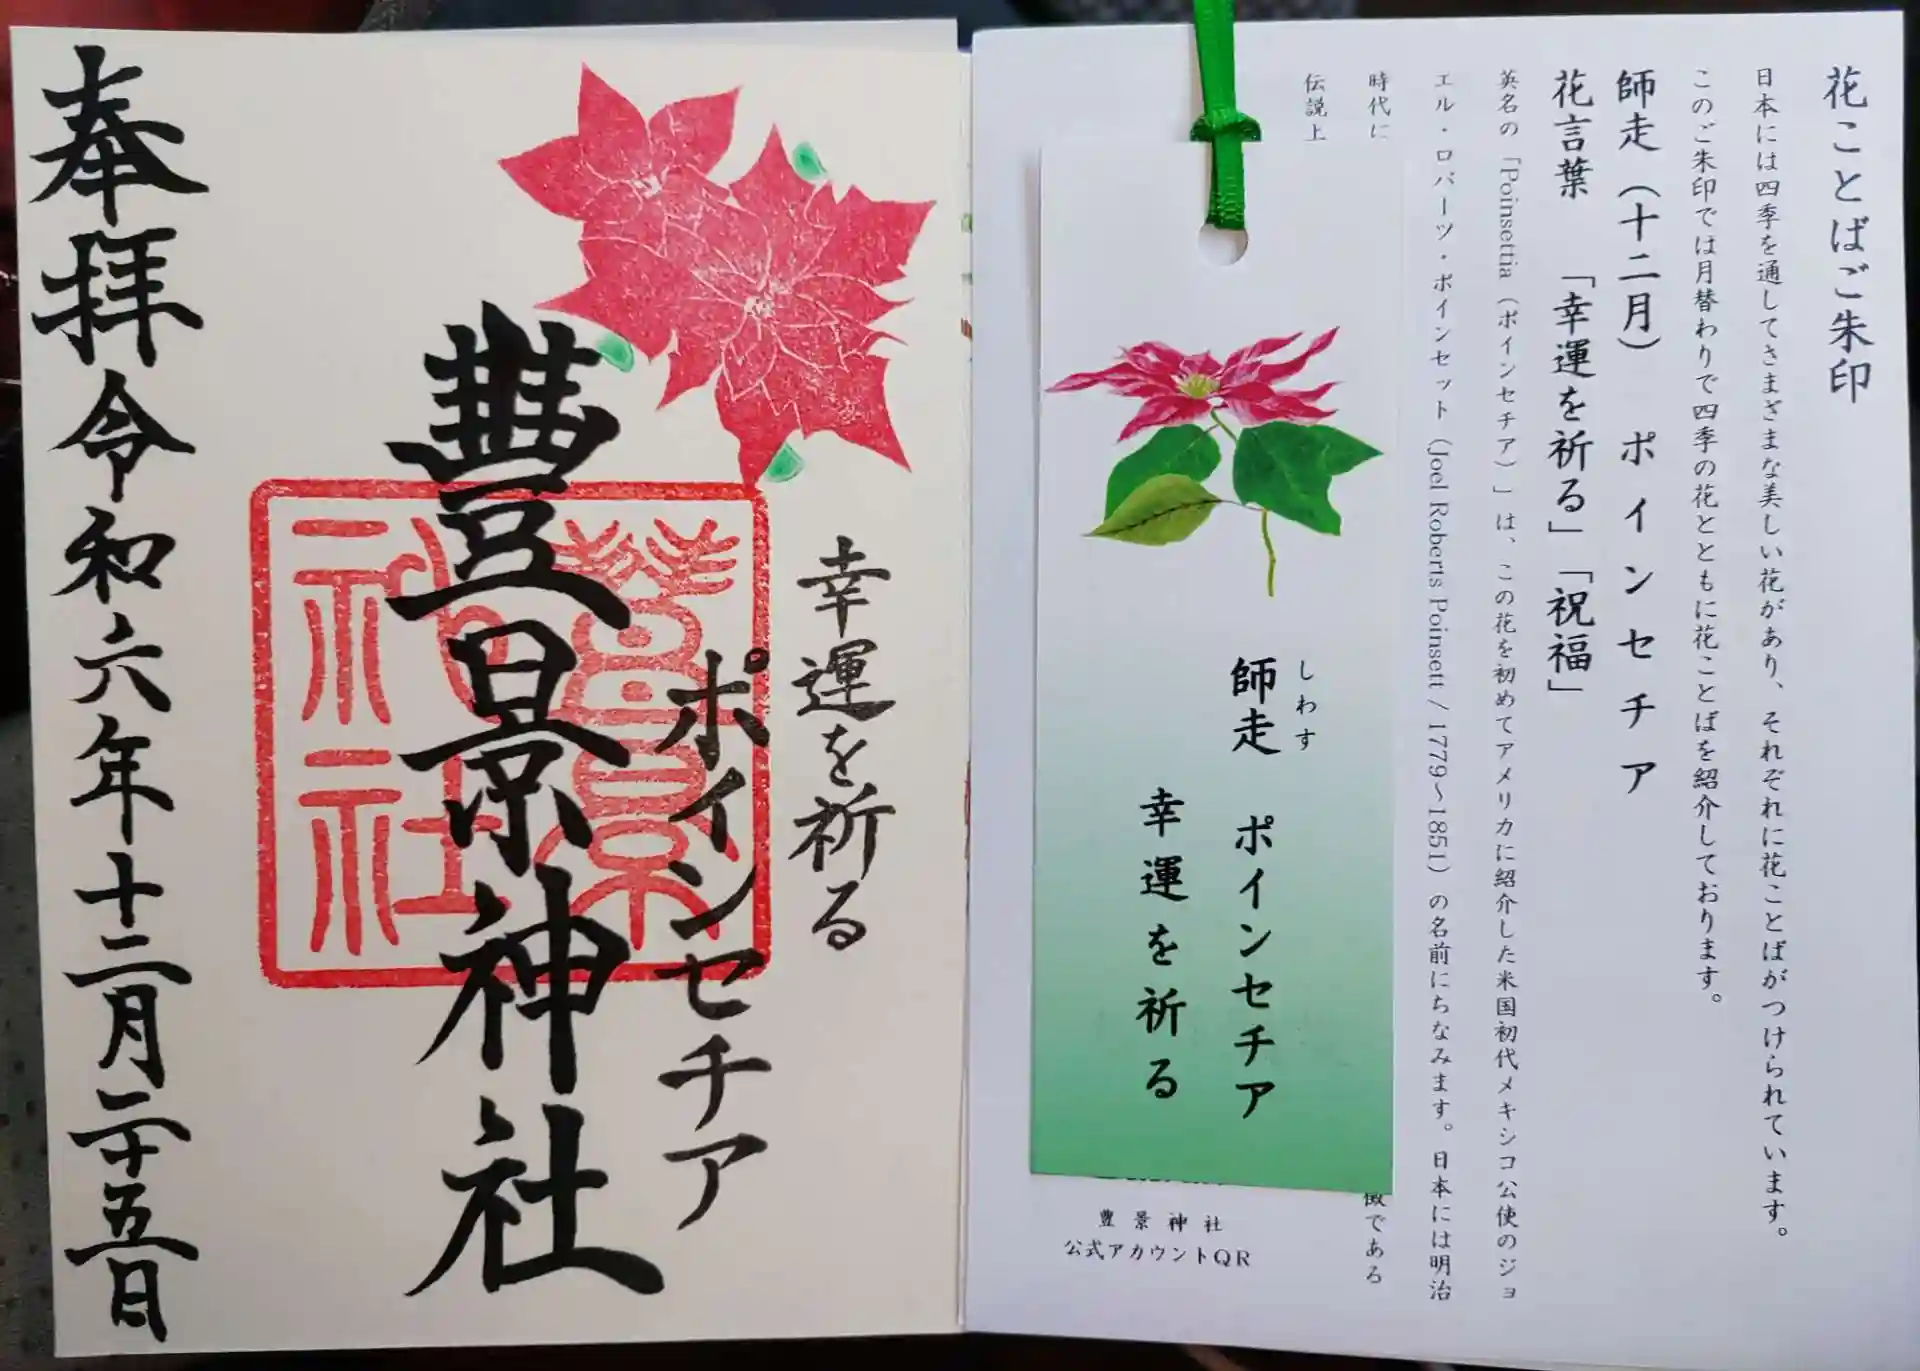 花ことばご朱印
日本には四季を通してさまざまな美しい花があり、それぞれに花ことばがつけられています。
このご朱印では月替わりで四季の花とともに花ことばを紹介しております。
師走（十二月） ポインセチア
花言葉 「幸運を祈る」「祝福」
英名の「Poinsettia（ポインセチア）」は、この花を初めてアメリカに紹介した米国初代メキシコ公使のジョ
エル・ロバーツ・ポインセット（Joel Roberts Poinsett / 1779～1851）の名前にちなみます。日本には明治
時代に
徴である
伝説上
豊景神社
公式アカウントQR
しわす
師走 ポインセチア
幸運を祈る
幸運を祈る
ポインセチア
豊景神社
豊景
神社
奉拝 令和六年十二月二十五日